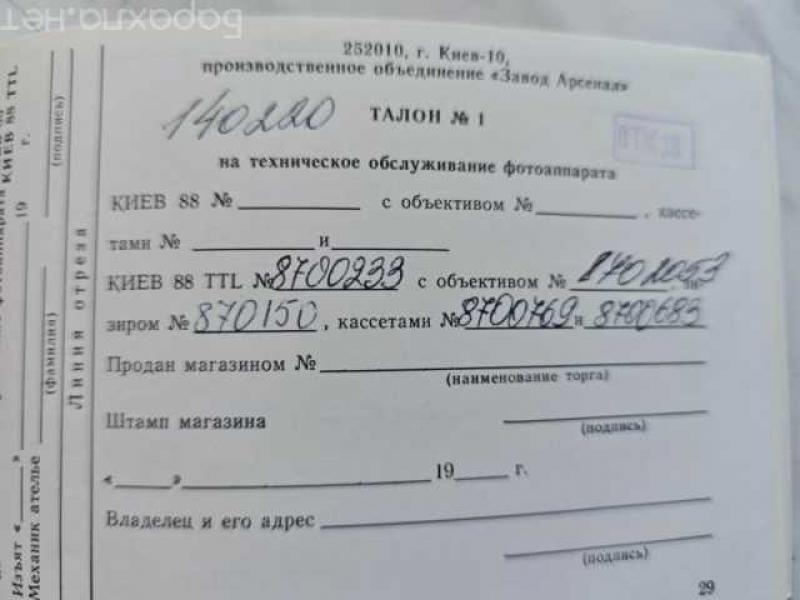 барахла.нет
252010, г. Киев-10,
производственное объединение «Завод Арсенал»
140220 ТАЛОН № 1
на техническое обслуживание фотоаппарата
КИЕВ 88 № с объективом № , кассе-
тами № и
КИЕВ 88 TTL № 8700233 с объективом №
зиром № 870150, кассетами № 8700769 и 8700683
Продан магазином №
(наименование торга)
Штамп магазина
(подпись)
« » 19 г.
Владелец и его адрес
(подпись)
29
Линия отреза
(фамилия) (подпись)
Изъят « » 19 г.
Механик ателье
КИЕВ 88 TTL